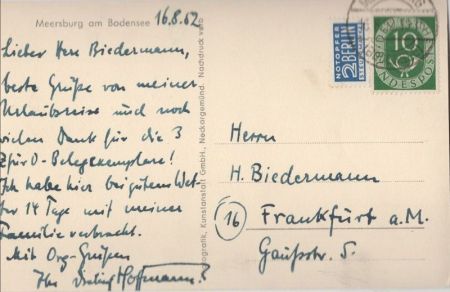 Meersburg am Bodensee
16.8.52
Lieber Herr Biedermann,
beste Grüße von meiner
Urlaubsreise und noch
vielen Dank für die 3
ZfürO-Belegexemplare!
Ich habe hier bei gutem Wet-
ter 14 Tage mit meiner
Familie verbracht.
Mit Org-Grüßen
Ihr Hoffmann
Kunstanstalt GmbH., Neckargemünd. Nachdruck verb
NOTOPFER
2 BERLIN
STEUERMARKE
10
DEUTSCHE
BUNDESPOST
Herrn
H. Biedermann
(16) Frankfurt a.M.
Gaußstr. 5